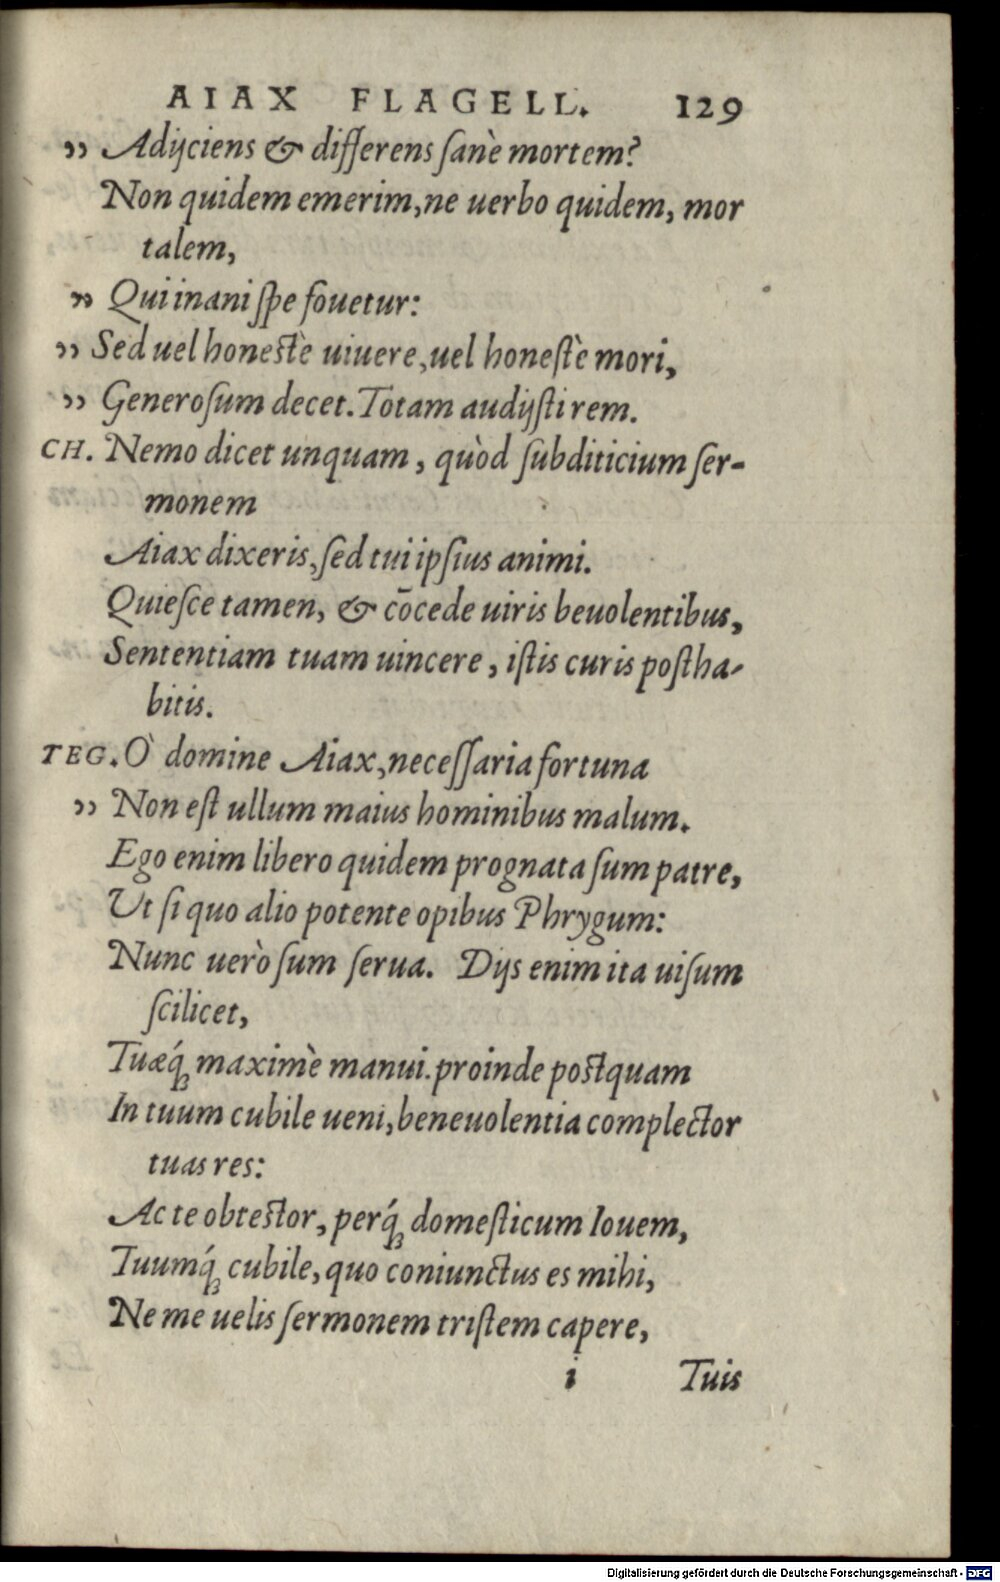 AIAX FLAGELL. 129
„ Adijciens & differens sanè mortem?
Non quidem emerim, ne uerbo quidem, mor
talem,
„ Qui inani spe fouetur:
„ Sed uel honestè uiuere, uel honestè mori,
„ Generosum decet. Totam audijsti rem.
CH. Nemo dicet unquam, quòd subditicium ser-
monem
Aiax dixeris, sed tui ipsius animi.
Quiesce tamen, & cōcede uiris beuolentibus,
Sententiam tuam uincere, istis curis postha-
bitis.
TEG. Ò domine Aiax, necessaria fortuna
„ Non est ullum maius hominibus malum.
Ego enim libero quidem prognata sum patre,
Ut si quo alio potente opibus Phrygum:
Nunc uerò sum serua. Dijs enim ita uisum
scilicet,
Tuæq́; maximè manui. proinde postquam
In tuum cubile ueni, beneuolentia complector
tuas res:
Ac te obtestor, perq́; domesticum Iouem,
Tuumq́; cubile, quo coniunctus es mihi,
Ne me uelis sermonem tristem capere,
i Tuis
Digitalisierung gefördert durch die Deutsche Forschungsgemeinschaft - DFG